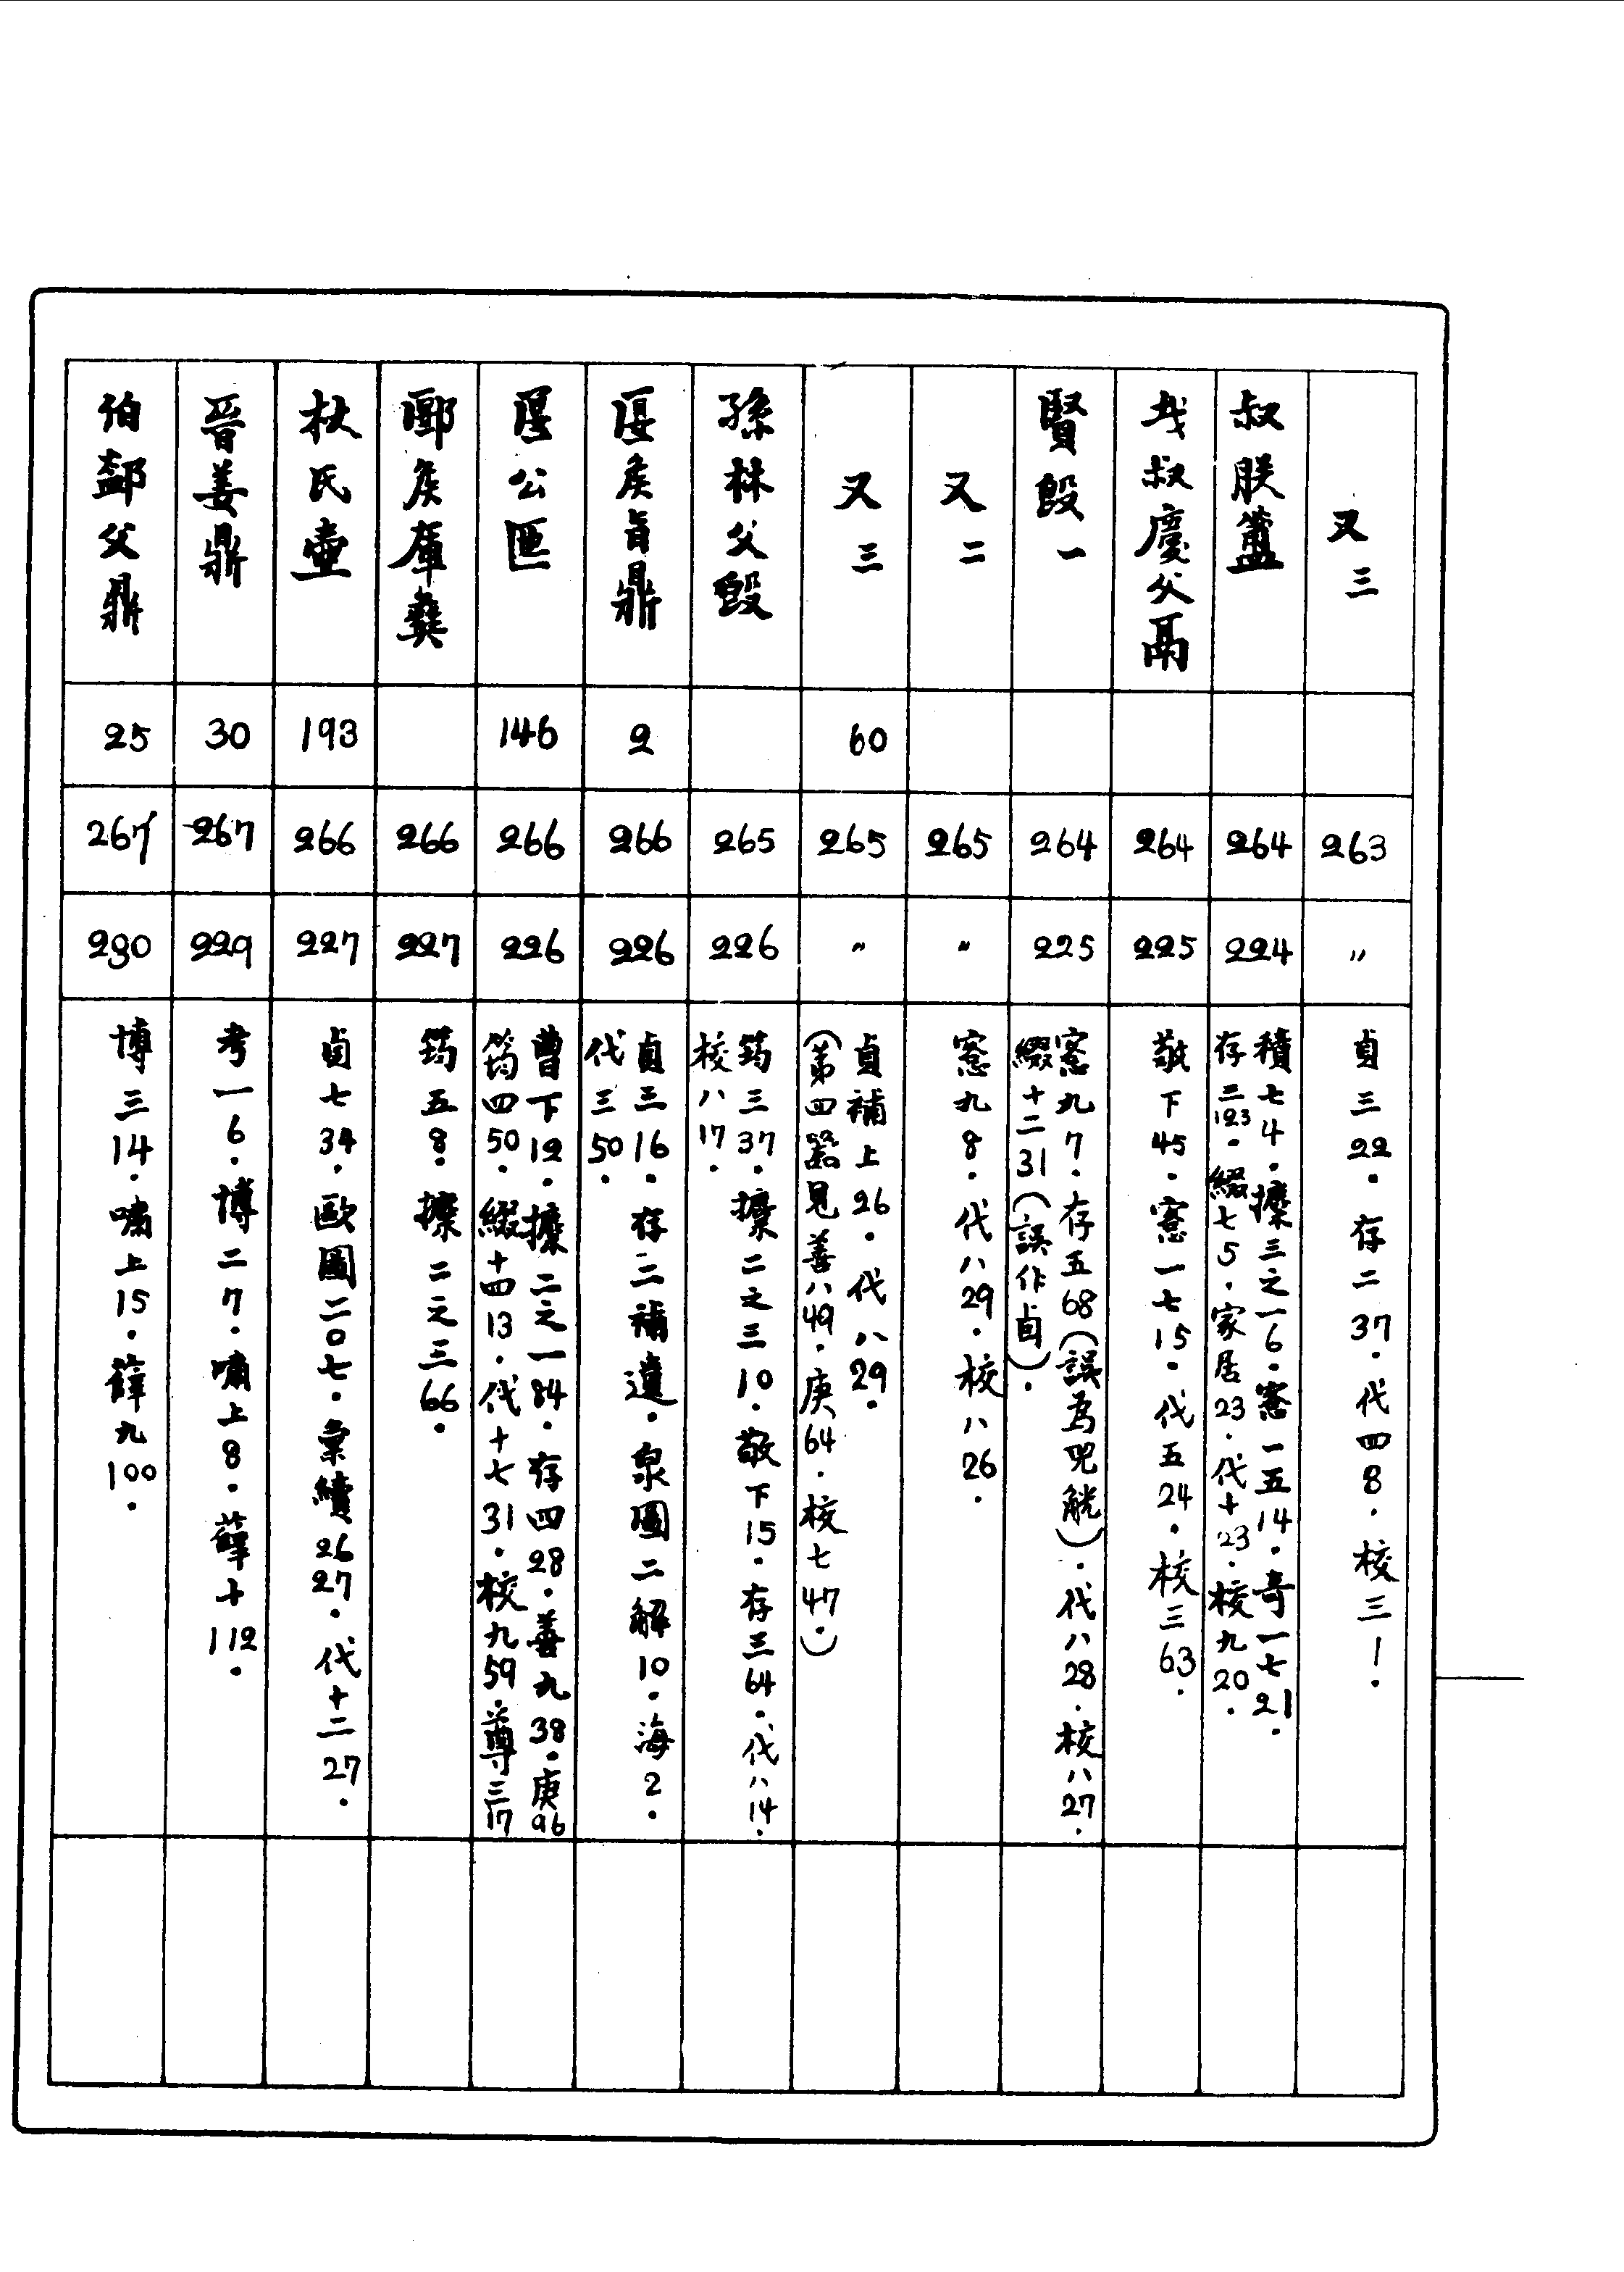 又三 263 〃 貞三22．存二37．代四8．校三1．
叔朕簠 264 224 積七4．攈三之一6．愙一五14．奇一七21．
存二123．綴七5．家居23．代十23．校九20．
戈叔慶父鬲 264 225 敬下45．愙一七15．代五24．校三63．
賢𣪘一 264 225 愙九7．存五68（誤為兕觥）．代八28．校八27．
綴十二31（誤作卣）．
又二 265 〃 愙九8．代八29．校八26．
又三 60 265 〃 貞補上26．代八29．
（第四器見善八49．庚64．校七47．）
孫林父𣪘 265 226 筠三37．攈二之三10．敬下15．存三64．代八14．
校八17．
匽侯旨鼎 2 266 226 貞三16．存二補遺．泉圖二解10．海2．
代三50．
匽公匜 146 266 226 曹下12．攈二之一84．存四28．善九38．庚96
筠四50．綴十四13．代十七31．校九59．尊三17
郾侯庫彝 266 227 筠五8．攈二之三66．
杕氏壺 193 266 227 貞七34．歐圖二〇七．彙續26 27．代十二27．
晉姜鼎 30 267 229 考一6．博二7．嘯上8．薛十112．
伯郄父鼎 25 267 230 博三14．嘯上15．薛九100．